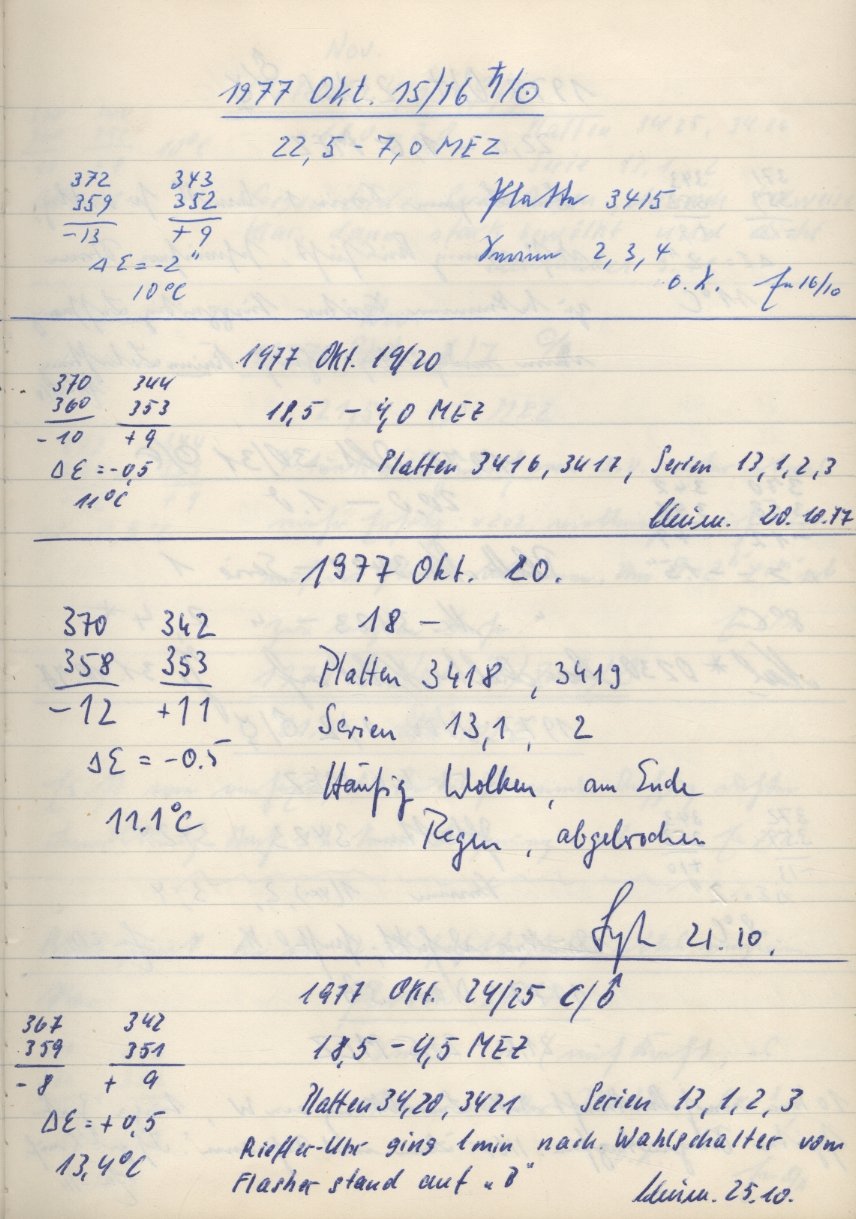 1977 Okt. 15/16 ♄/☉
22,5 - 7,0 MEZ
372 343
359 352
-13 +9
Δε = -2"
10°C
Platte 3415
Serien 2, 3, 4
o. K. 16/10
1977 Okt. 19/20
370 344
360 353
-10 +9
18,5 - 4,0 MEZ
Δε = -0,5
11°C
Platten 3416, 3417, Serien 13, 1, 2, 3
20.10.77
1977 Okt. 20.
370 342
358 353
-12 +11
18 -
Platten 3418, 3419
Serien 13, 1, 2
Δε = -0.5
11.1°C
Häufig Wolken, am Ende
Regen, abgebrochen
21.10.
1977 Okt. 24/25
367 342
359 351
-8 +9
18,5 - 4,5 MEZ
Δε = +0,5
13,4°C
Platten 3420, 3421 Serien 13, 1, 2, 3
Riefler-Uhr ging 1 min nach. Wahlschalter vom
Flasher stand auf „B"
25.10.